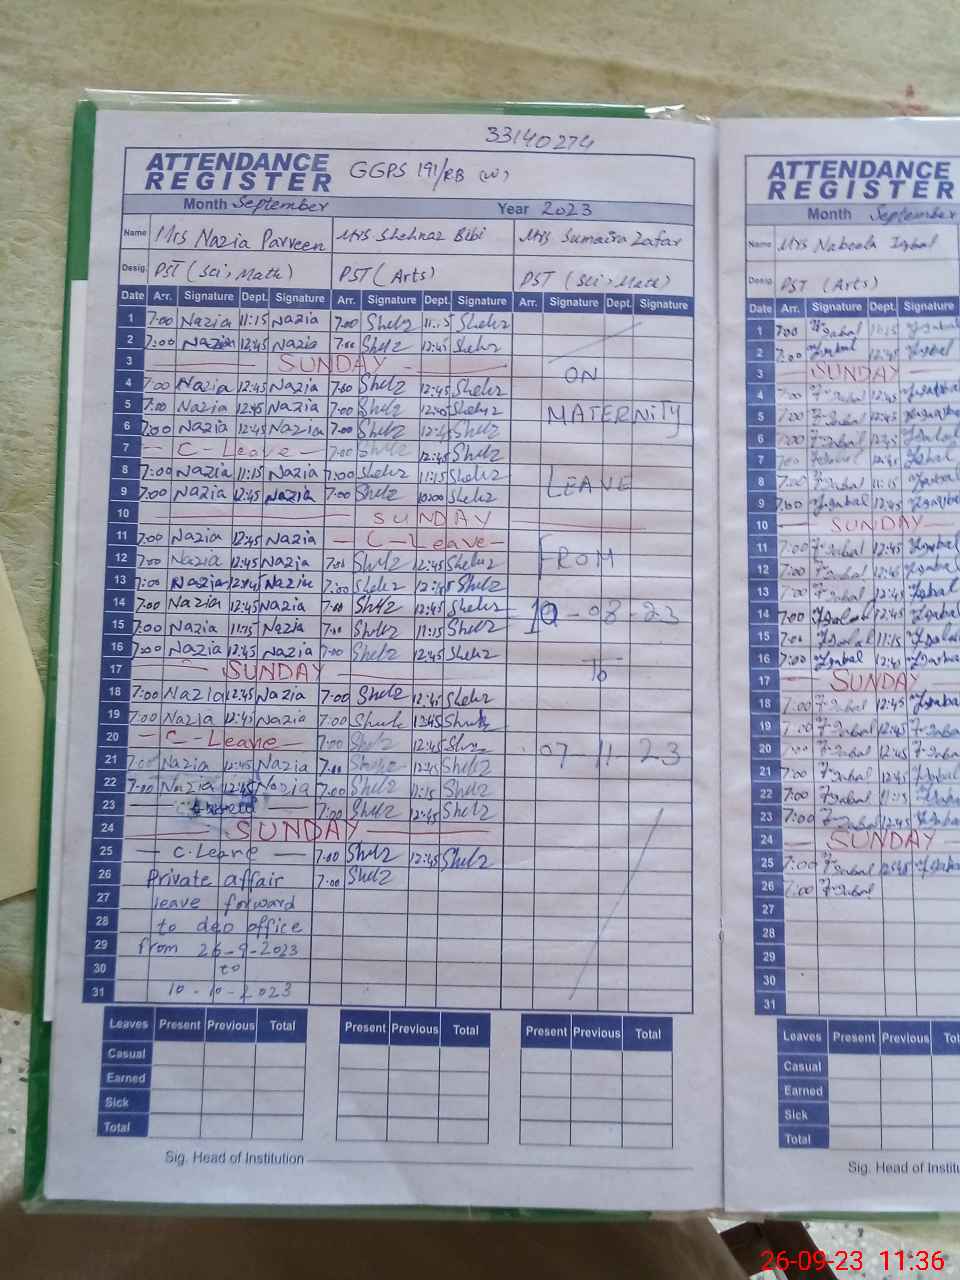 33140274
ATTENDANCE REGISTER GGPS 191/RB (W)
Month September Year 2023
Name Mrs Nazia Parveen Mrs Shehnaz Bibi Mrs Sumaira Zafar
Desig. PST (Sci, Math) PST (Arts) PST (Sci, Math)
Date Arr. Signature Dept. Signature Arr. Signature Dept. Signature Arr. Signature Dept. Signature
1 7:00 Nazia 11:15 Nazia 7:00 Shelz 11:15 Shelz
2 7:00 Nazia 12:45 Nazia 7:00 Shelz 12:45 Shelz
3 SUNDAY
4 7:00 Nazia 12:45 Nazia 7:00 Shelz 12:45 Shelz ON
5 7:00 Nazia 12:45 Nazia 7:00 Shelz 12:45 Shelz MATERNITY
6 7:00 Nazia 12:45 Nazia 7:00 Shelz 12:45 Shelz
7 C-Leave 7:00 Shelz 12:45 Shelz
8 7:00 Nazia 11:15 Nazia 7:00 Shelz 11:15 Shelz LEAVE
9 7:00 Nazia 12:45 Nazia 7:00 Shelz Shelz
10 SUNDAY
11 7:00 Nazia 12:45 Nazia C-Leave
12 7:00 Nazia 12:45 Nazia 7:00 Shelz 12:45 Shelz FROM
13 7:00 Nazia 12:45 Nazia 7:00 Shelz 12:45 Shelz
14 7:00 Nazia 12:45 Nazia 7:00 Shelz 12:45 Shelz -08-23
15 7:00 Nazia 11:15 Nazia 7:00 Shelz 11:15 Shelz
16 7:00 Nazia 12:45 Nazia 7:00 Shelz 12:45 Shelz
17 SUNDAY To
18 7:00 Nazia 12:45 Nazia 7:00 Shelz 12:45 Shelz
19 7:00 Nazia 12:45 Nazia 7:00 12:45
20 C-Leave 7:00 Shelz 12:45 07-11-23
21 7:00 Nazia 12:45 Nazia 7:00 Shelz 12:45 Shelz
22 7:00 Nazia 12:45 Nazia 7:00 Shelz 11:15 Shelz
23 7:00 Shelz 12:45 Shelz
24 SUNDAY
25 C.Leave 7:00 Shelz 12:45 Shelz
26 Private affair 7:00 Shelz
27 leave forward
28 to deo office
29 from 26-9-2023
30 to
31 10-10-2023
Leaves Present Previous Total Present Previous Total Present Previous Total
Casual
Earned
Sick
Total
Sig. Head of Institution
ATTENDANCE REGISTER
Month September
Name Mrs Nabeela Iqbal
Desig. PST (Arts)
Date Arr. Signature Dept. Signature
1 7:00 Iqbal 11:15 Iqbal
2 7:00 Iqbal 12:45 Iqbal
3 SUNDAY
4 7:00 Iqbal 12:45 Iqbal
5 7:00 Iqbal 12:45 Iqbal
6 7:00 Iqbal 12:45 Iqbal
7 7:00 Iqbal 12:45 Iqbal
8 7:00 Iqbal 11:15 Iqbal
9 7:00 Iqbal 12:45 Iqbal
10 SUNDAY
11 7:00 Iqbal 12:45 Iqbal
12 7:00 Iqbal 12:45 Iqbal
13 7:00 Iqbal 12:45 Iqbal
14 7:00 Iqbal 12:45 Iqbal
15 7:00 Iqbal 11:15 Iqbal
16 7:00 Iqbal 12:45 Iqbal
17 SUNDAY
18 7:00 Iqbal 12:45 Iqbal
19 7:00 Iqbal 12:45 Iqbal
20 7:00 Iqbal 12:45 Iqbal
21 7:00 Iqbal 12:45 Iqbal
22 7:00 Iqbal 11:15 Iqbal
23 7:00 Iqbal 12:45 Iqbal
24 SUNDAY
25 7:00 Iqbal 12:45 Iqbal
26 7:00 Iqbal
27
28
29
30
31
Leaves Present Previous
Casual
Earned
Sick
Total
Sig. Head of
26-09-23 11:36